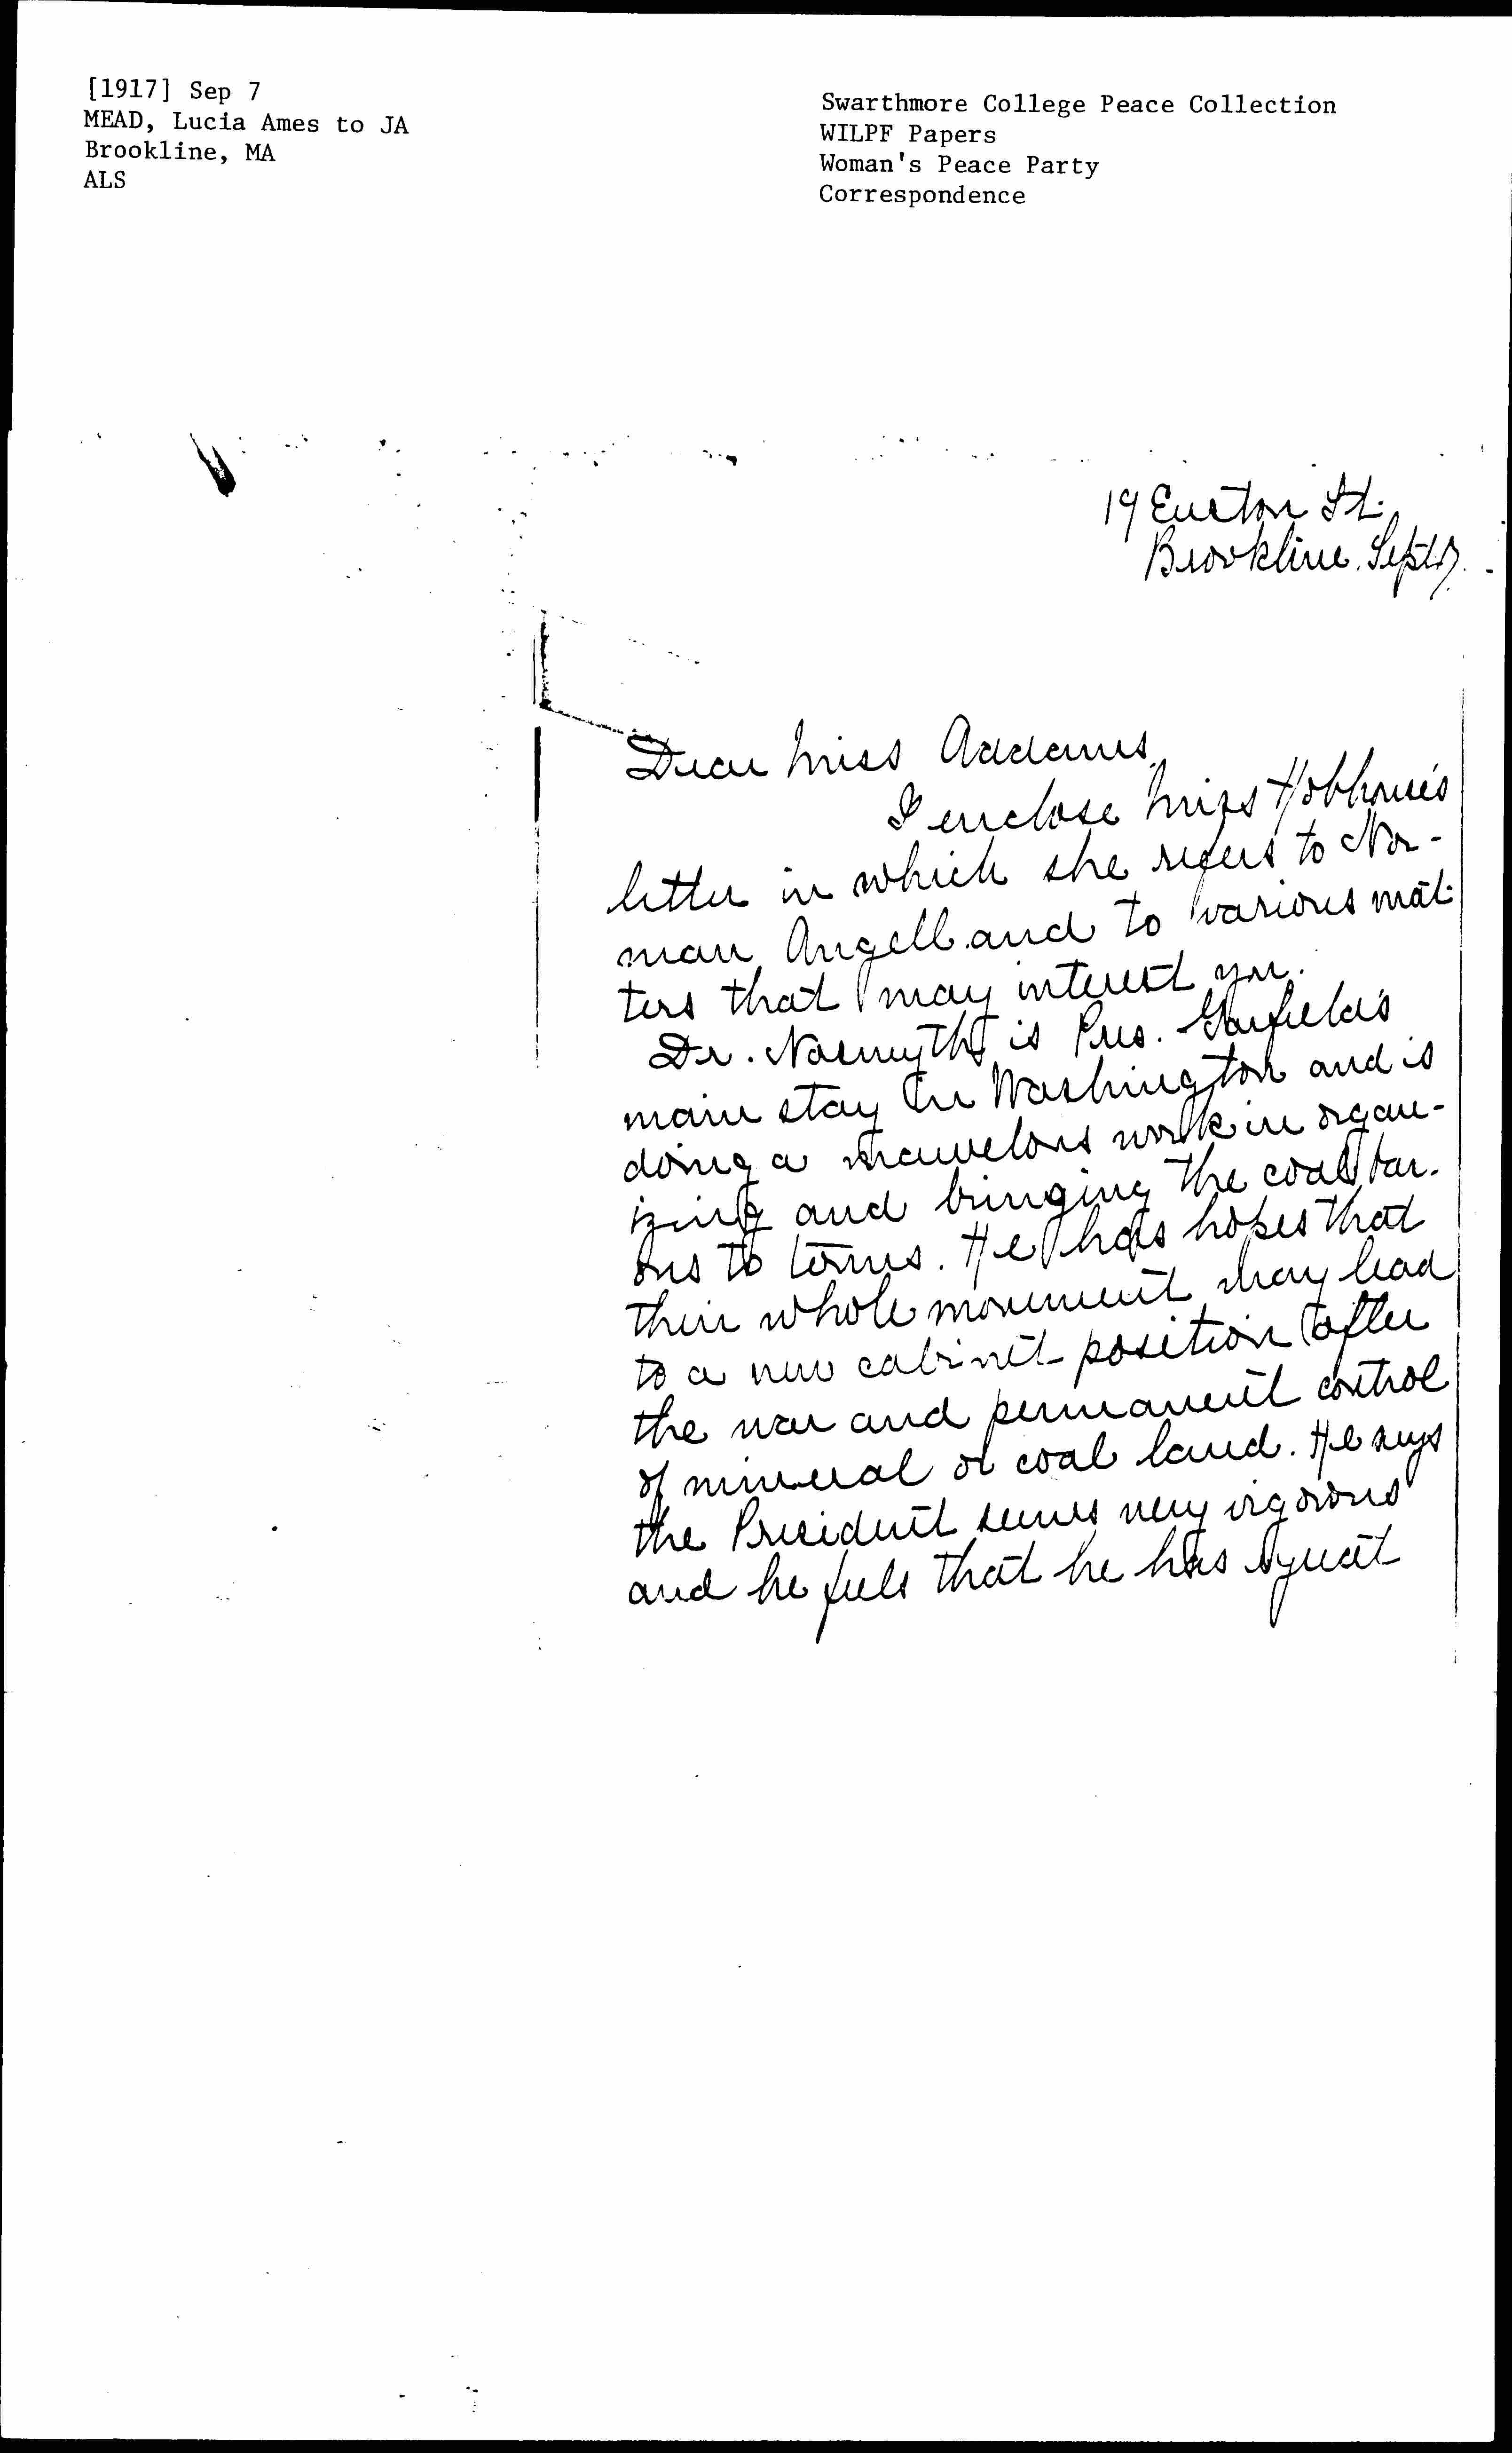 [1917] Sep 7
MEAD, Lucia Ames to JA
Brookline, MA
ALS
Swarthmore College Peace Collection
WILPF Papers
Woman's Peace Party
Correspondence
19 Euston St.
Brookline. Sept 7.
Dear Miss Addams,
I enclose Miss Hobhouse's
letter in which she refers to Nor-
man Angell and to various mat-
ters that may interest you.
Dr. Nasmyth is Pres. Garfield's
main stay in Washington and is
doing a marvelous work in organ-
izing and bringing the coal bar-
ons to terms. He has hopes that
their whole movement may lead
to a new cabinet position after
the war and permanent control
of mineral or coal land. He says
the President seems very vigorous
and he feels that he has great